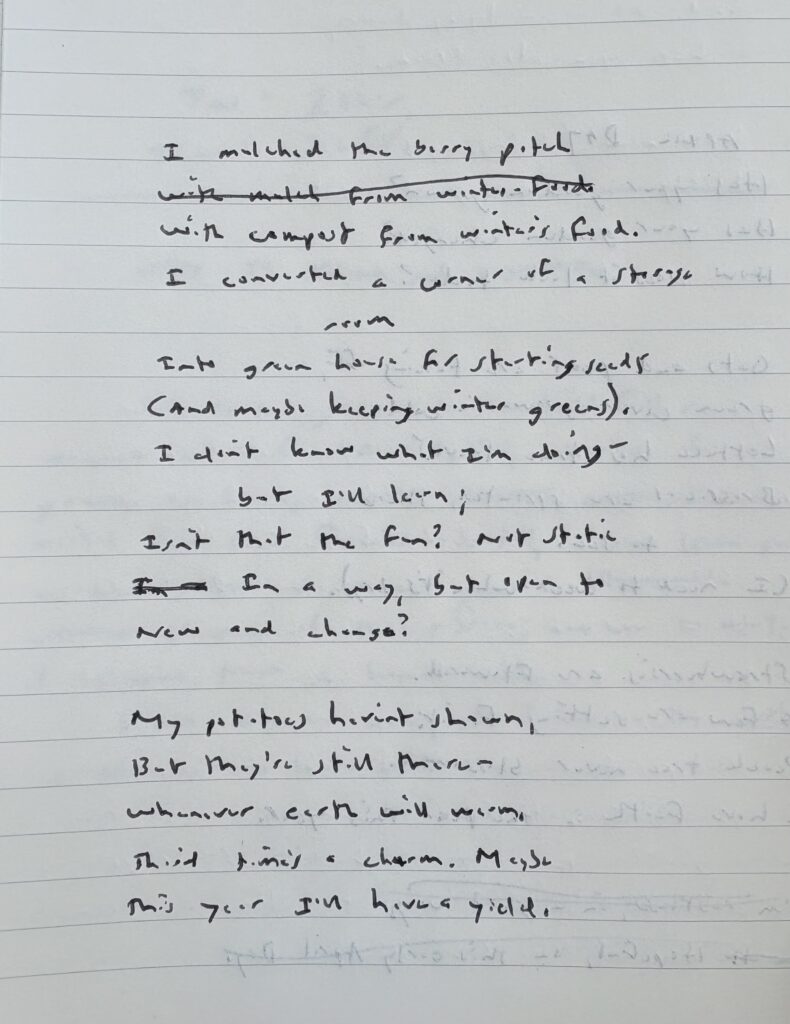 I mulched the berry patch
with mulch from winter food
with compost from winter's food.
I converted a corner of a storage
room
Into green house for starting seeds
(And maybe keeping winter greens).
I don't know what I'm doing—
but I'll learn;
Isn't that the fun? Not static
Im In a way, but open to
New and change?
My potatoes haven't shown,
But they're still there—
whenever earth will warm.
Third time's a charm. Maybe
This year I'll have a yield.